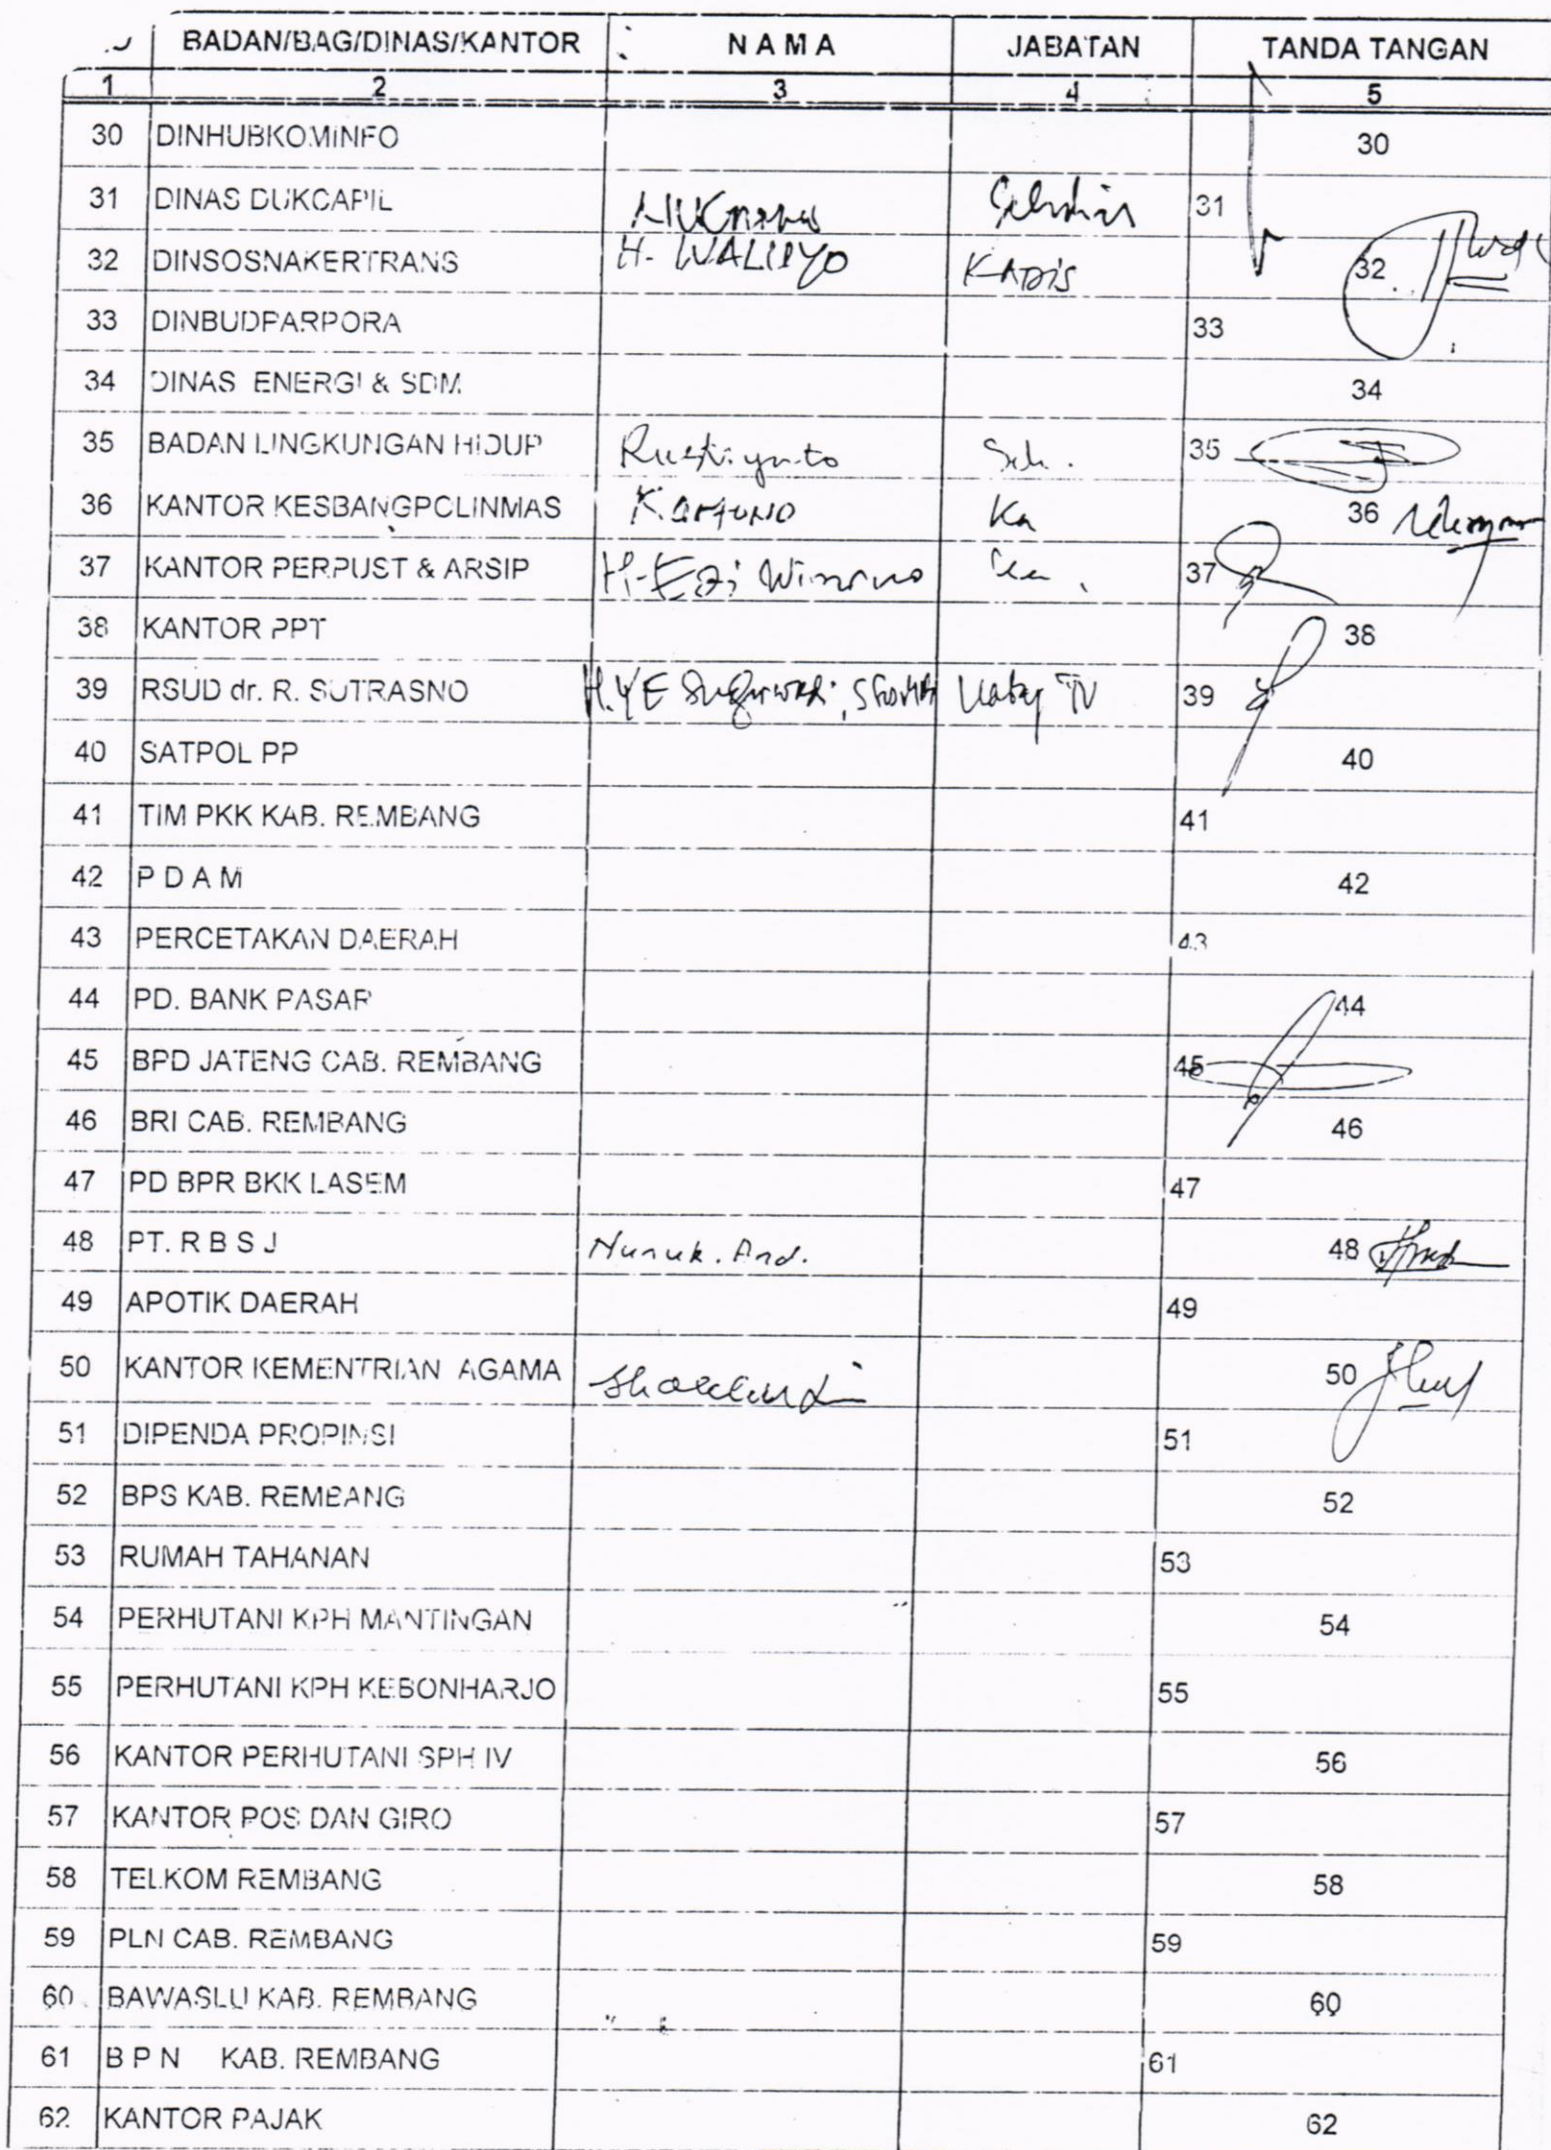 BADAN/BAG/DINAS/KANTOR NAMA JABATAN TANDA TANGAN
1 2 3 4 5
30 DINHUBKOMINFO 30
31 DINAS DUKCAPIL 31
32 DINSOSNAKERTRANS H. WALUYO KADIS 32
33 DINBUDPARPORA 33
34 DINAS ENERGI & SDM 34
35 BADAN LINGKUNGAN HIDUP Rustiyanto 35
36 KANTOR KESBANGPOLINMAS Kartono Ka 36
37 KANTOR PERPUST & ARSIP H. Edi Winarno 37
38 KANTOR PPT 38
39 RSUD dr. R. SUTRASNO Kabag TU 39
40 SATPOL PP 40
41 TIM PKK KAB. REMBANG 41
42 P D A M 42
43 PERCETAKAN DAERAH 43
44 PD. BANK PASAR 44
45 BPD JATENG CAB. REMBANG 45
46 BRI CAB. REMBANG 46
47 PD BPR BKK LASEM 47
48 PT. R B S J Nunuk. And. 48
49 APOTIK DAERAH 49
50 KANTOR KEMENTRIAN AGAMA 50
51 DIPENDA PROPINSI 51
52 BPS KAB. REMBANG 52
53 RUMAH TAHANAN 53
54 PERHUTANI KPH MANTINGAN 54
55 PERHUTANI KPH KEBONHARJO 55
56 KANTOR PERHUTANI SPH IV 56
57 KANTOR POS DAN GIRO 57
58 TELKOM REMBANG 58
59 PLN CAB. REMBANG 59
60 BAWASLU KAB. REMBANG 60
61 B P N KAB. REMBANG 61
62 KANTOR PAJAK 62